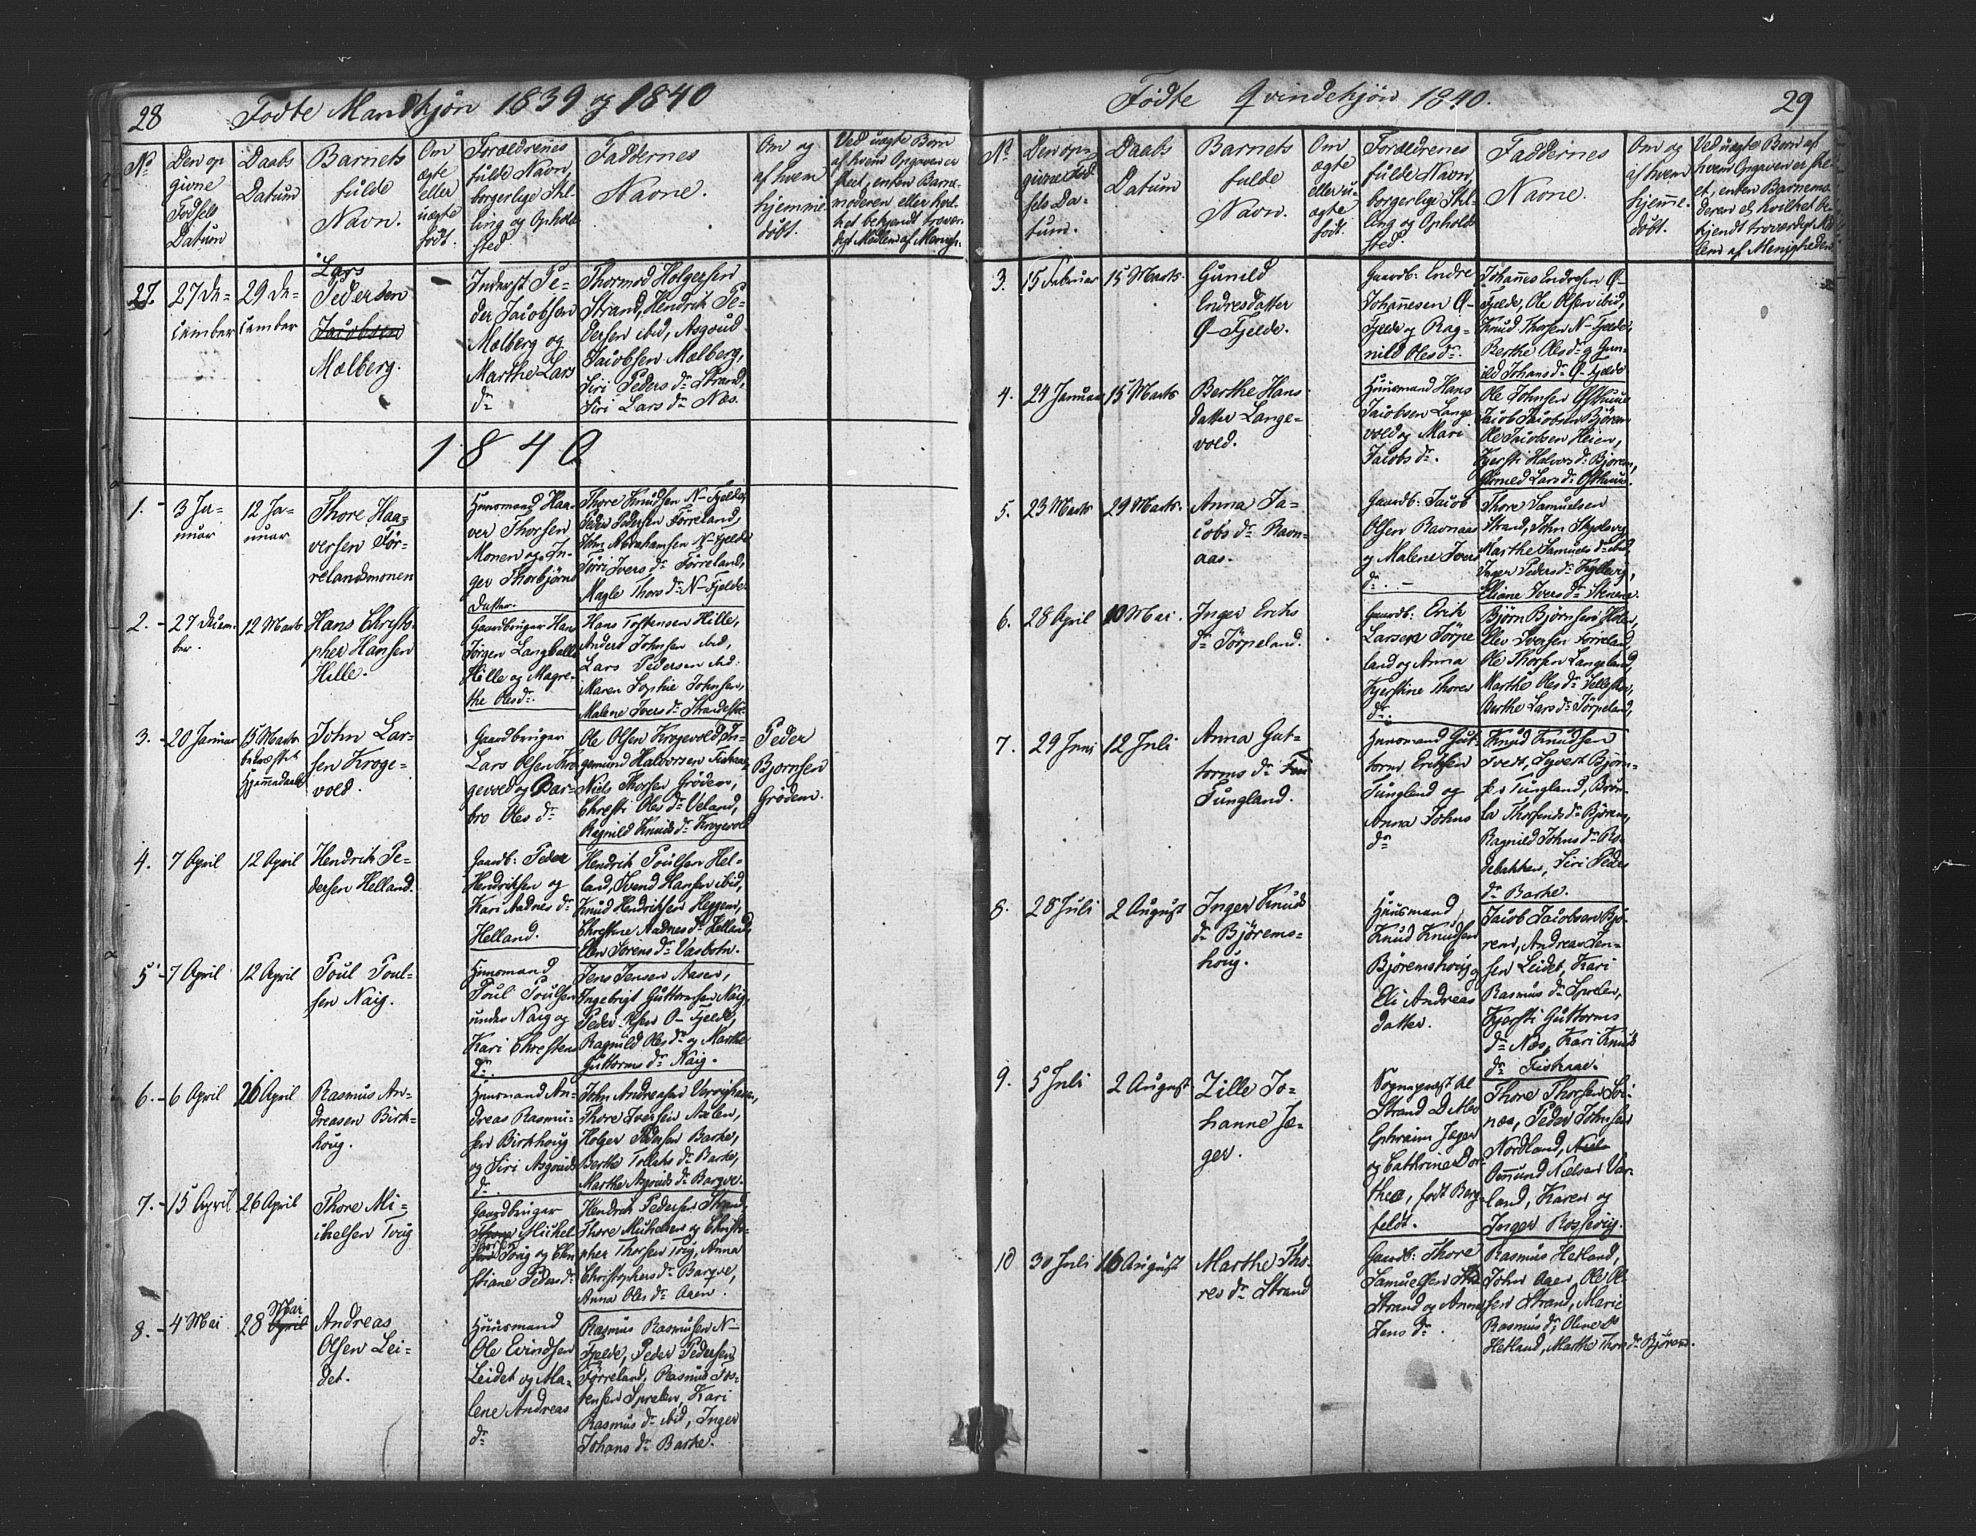 28
Fødte Mandkjøn 1839 og 1840
No
Den op
givne
Fødsels
Datum
Daabs
Datum
Barnets
fulde
Navn.
Om
ægte
eller
uægte
født.
Forældrenes
fulde Navn,
borgerlige Stil-
ling og Opholds
sted
Faddernes
Navne.
Om og
af hvem
hjemme
døbt.
Ved uægte Børn
af hvem Opgaven er
skeet, enten Barne-
moderen eller hvil-
ket bekjendt trover-
digt Medlem af Menigh.
27.
27 De-
cember
29 De-
cember
Lars
Pedersen
Jacobsen
Mælberg.
Inderst Pe-
der Jacobsen
Mælberg og
Marthe Lars
dr
Thormod Holgersen
Strand, Hendrik Pe-
dersen ibid, Asgoud
Jacobsen Mælberg,
Siri Peders dr Strand,
Siri Lars dr Næs.
1840
1.
3 Ja-
nuar
12 Ja-
nuar
Thore Haa-
versen Før-
relandsmonen
Huusmand Haa-
ver Thorsen
Monen og In-
ger Thorbjørns
Datter.
Thore Knudsen N-Fjelde,
Peder Pedersen Førreland,
John Abrahamsen N-Fjelde
Siri Ivers dr Førreland,
Magle Thors dr N-Fjelde
2.
27 Decem-
ber.
12 Marts
Hans Christo-
pher Hansen
Hille.
Gaardbruger Hans
Jørgen Langballe
Hille og Magre-
the Oles dr.
Hans Tostensen Hille,
Anders Johnsen ibid,
Lars Pedersen ibid:
Maren Sophie Johnsen,
Malene Ivers dr
3.
20 Januar
15 Marts
bekræftet
Hjemmedaab
John Lar-
sen Kroge-
vold.
Gaardbruger
Lars Olsen Kro-
gevold og Bar-
bro Oles dr
Ole Olsen Krogevold, In-
gemund Halvorsen Fiskaae,
Niels Thorsen Grødem,
Chresti Oles dr Veland,
Ragnild Knuds dr Krogevold
Peder
Bjørnsen
Grødem.
4.
7 April
12 April
Hendrik Pe-
dersen Helland.
Gaardb: Peder
Hendriksen og
Kari Aadnes dr
Helland.
Hendrik Poulsen Hel-
land, Svend Hansen ibid,
Knud Hendriksen Heggem,
Chrestine Aadnes dr Helland,
Elen Sørens dr Vasbotn.
5
7 April
12 April
Poul Poul-
sen Naig.
Huusmand
Poul Poulsen
under Naig og
Kari Chrestens
dr.
Jens Jensen Aasen,
Ingebrigt Guttormsen Naig,
Peder O-Fjelde,
Ragnild Oles dr og Marthe
Guttorms dr Naig.
6.
6 April
26 April
Rasmus An-
dreasen Birk-
houg.
Huusmand An-
dreas Rasmus-
sen Birkhoug
og Siri Asgouds
dr.
John Andreasen
Thore Iversen Aalen,
Holger Pedersen Barke,
Berthe Tollaks dr Barke,
Marthe Asgouds dr Barqve.
7.
15 April
26 April
Thore Mi-
chelsen Tvrig
Gaardbruger
Michel
Tvrig og Chri-
stiane Peders dr
Hendrik Pedersen Strand,
Thore Michelsen og Christo-
pher Thorsen Tvrig, Anna
Christophers dr Barqve,
Anna Oles dr Aaen.
8.
4 Mai
28 Mai
April
Andreas
Olsen Lei-
det.
Huusmand
Ole Eivindsen
Leidet og Ma-
lene Andreas
dr
Rasmus Rasmusen N-
Fjelde, Peder Pedersen
Førreland, Rasmus Tos-
tensen Sprelen, Kari
Rasmus dr ibid, Inger
Johans dr Barke.
Fødte Qvindekjøn 1840.
29
No
Den op-
givne Fød-
sels Da-
tum.
Daabs
Datum
Barnets
fulde
Navn.
Om
ægte
eller u-
ægte
født.
Forældrenes
fulde Navn,
borgerlige Stil-
ling og Opholds
sted.
Faddernes
Navne.
Om og
af hvem
hjemme-
døbt.
Ved uægte Børn af
hvem Opgaven er ske-
et, enten Barnemo-
deren el. hvilket be-
kjendt troværdigt Med-
lem af Menigheden.
3.
15 Februar
15 Marts
Gunild
Endresdatter
Ø-Fjelde.
Gaardb: Endre
Johannesen Ø-
Fjelde og Rag-
nild Oles dr.
Johannes Endresen Ø-
Fjelde, Ole Olsen ibid,
Knud Thorsen N-Fjelde,
Berthe Oles dr og Gun-
ild Johans dr Ø-Fjelde
4.
24 Januar
15 Marts
Berthe Hans
datter Lange-
vold.
Huusmand Hans
Jacobsen Lange
vold og Mari
Jacobs dr.
Ole Johnsen Østhuus
Jacob Jacobsen Bjørem
Ole Jacobsen Heien,
Kjersti Halvors dr Bjørem,
Gunild Lars dr Østhuus.
5.
23 Marts
29 Marts
Anna Ja-
cobs dr Ravn-
aas.
Gaardb: Jacob
Olsen Ravnaas
og Malene Ivers
dr.
Thore Samuelsen
Strand, John
Marthe Samuels dr ibid,
Inger Peders dr
Eliane Ivers dr
6.
28 April
10 Mai.
Inger Eriks
dr Tørpeland.
Gaardb: Erik
Larsen Tørpe
land og Anna
Kjerstine Thores
dr.
Bjørn Bjørnsen Holen,
Elev Iversen Førreland
Ole Thorsen Langeland,
Marthe Oles dr Tellestøe,
Berthe Lars dr Tørpeland,
7.
29 Juni
12 Juli
Anna Gut-
torms dr
Tungland.
Huusmand Gut-
torm Eriksen
Tungland og
Anna Johns
dr
Knud Knudsen
Tvedt, Syvert Bjørn-
sen Tungland, Brøn-
la Thorfinds dr Bjørem,
Ragnild Johns dr Ro-
debakken, Siri Peders
dr Barke.
8.
28 Juli
2 August
Inger Knuds
dr Bjørems-
houg.
Huusmand
Knud Knudsen
Bjøremshoug og
Eli Andreas
datter.
Jacob Jacobsen Bjø-
rem, Andreas Jen-
sen Leidet, Kari
Rasmus dr Sprelen,
Kjersti Guttorms
dr Næs, Kari Knuds
dr Fiskaae.
9.
5 Juli
2 August
Zille Jo-
hanne Jæ-
ger.
Sognepræst til
Strand
Ephraim Jæger
og Cathrine Dor-
thea, født Berg-
feldt.
Thore Thorsen
Peder Johnsen
Nordland,
Omund Nielsen Var-
land, Karen og
Inger Rossevig.
10
30 Juli
16 August
Marthe Tho-
res dr Strand
Gaardb: Thore
Samuelsen
Strand og Anna
Jens dr.
Rasmus Hetland,
John Aaen, Ole Ol-
sen Strand, Marie
Rasmus dr, Oline
Hetland, Marthe Thors dr Bjørem.